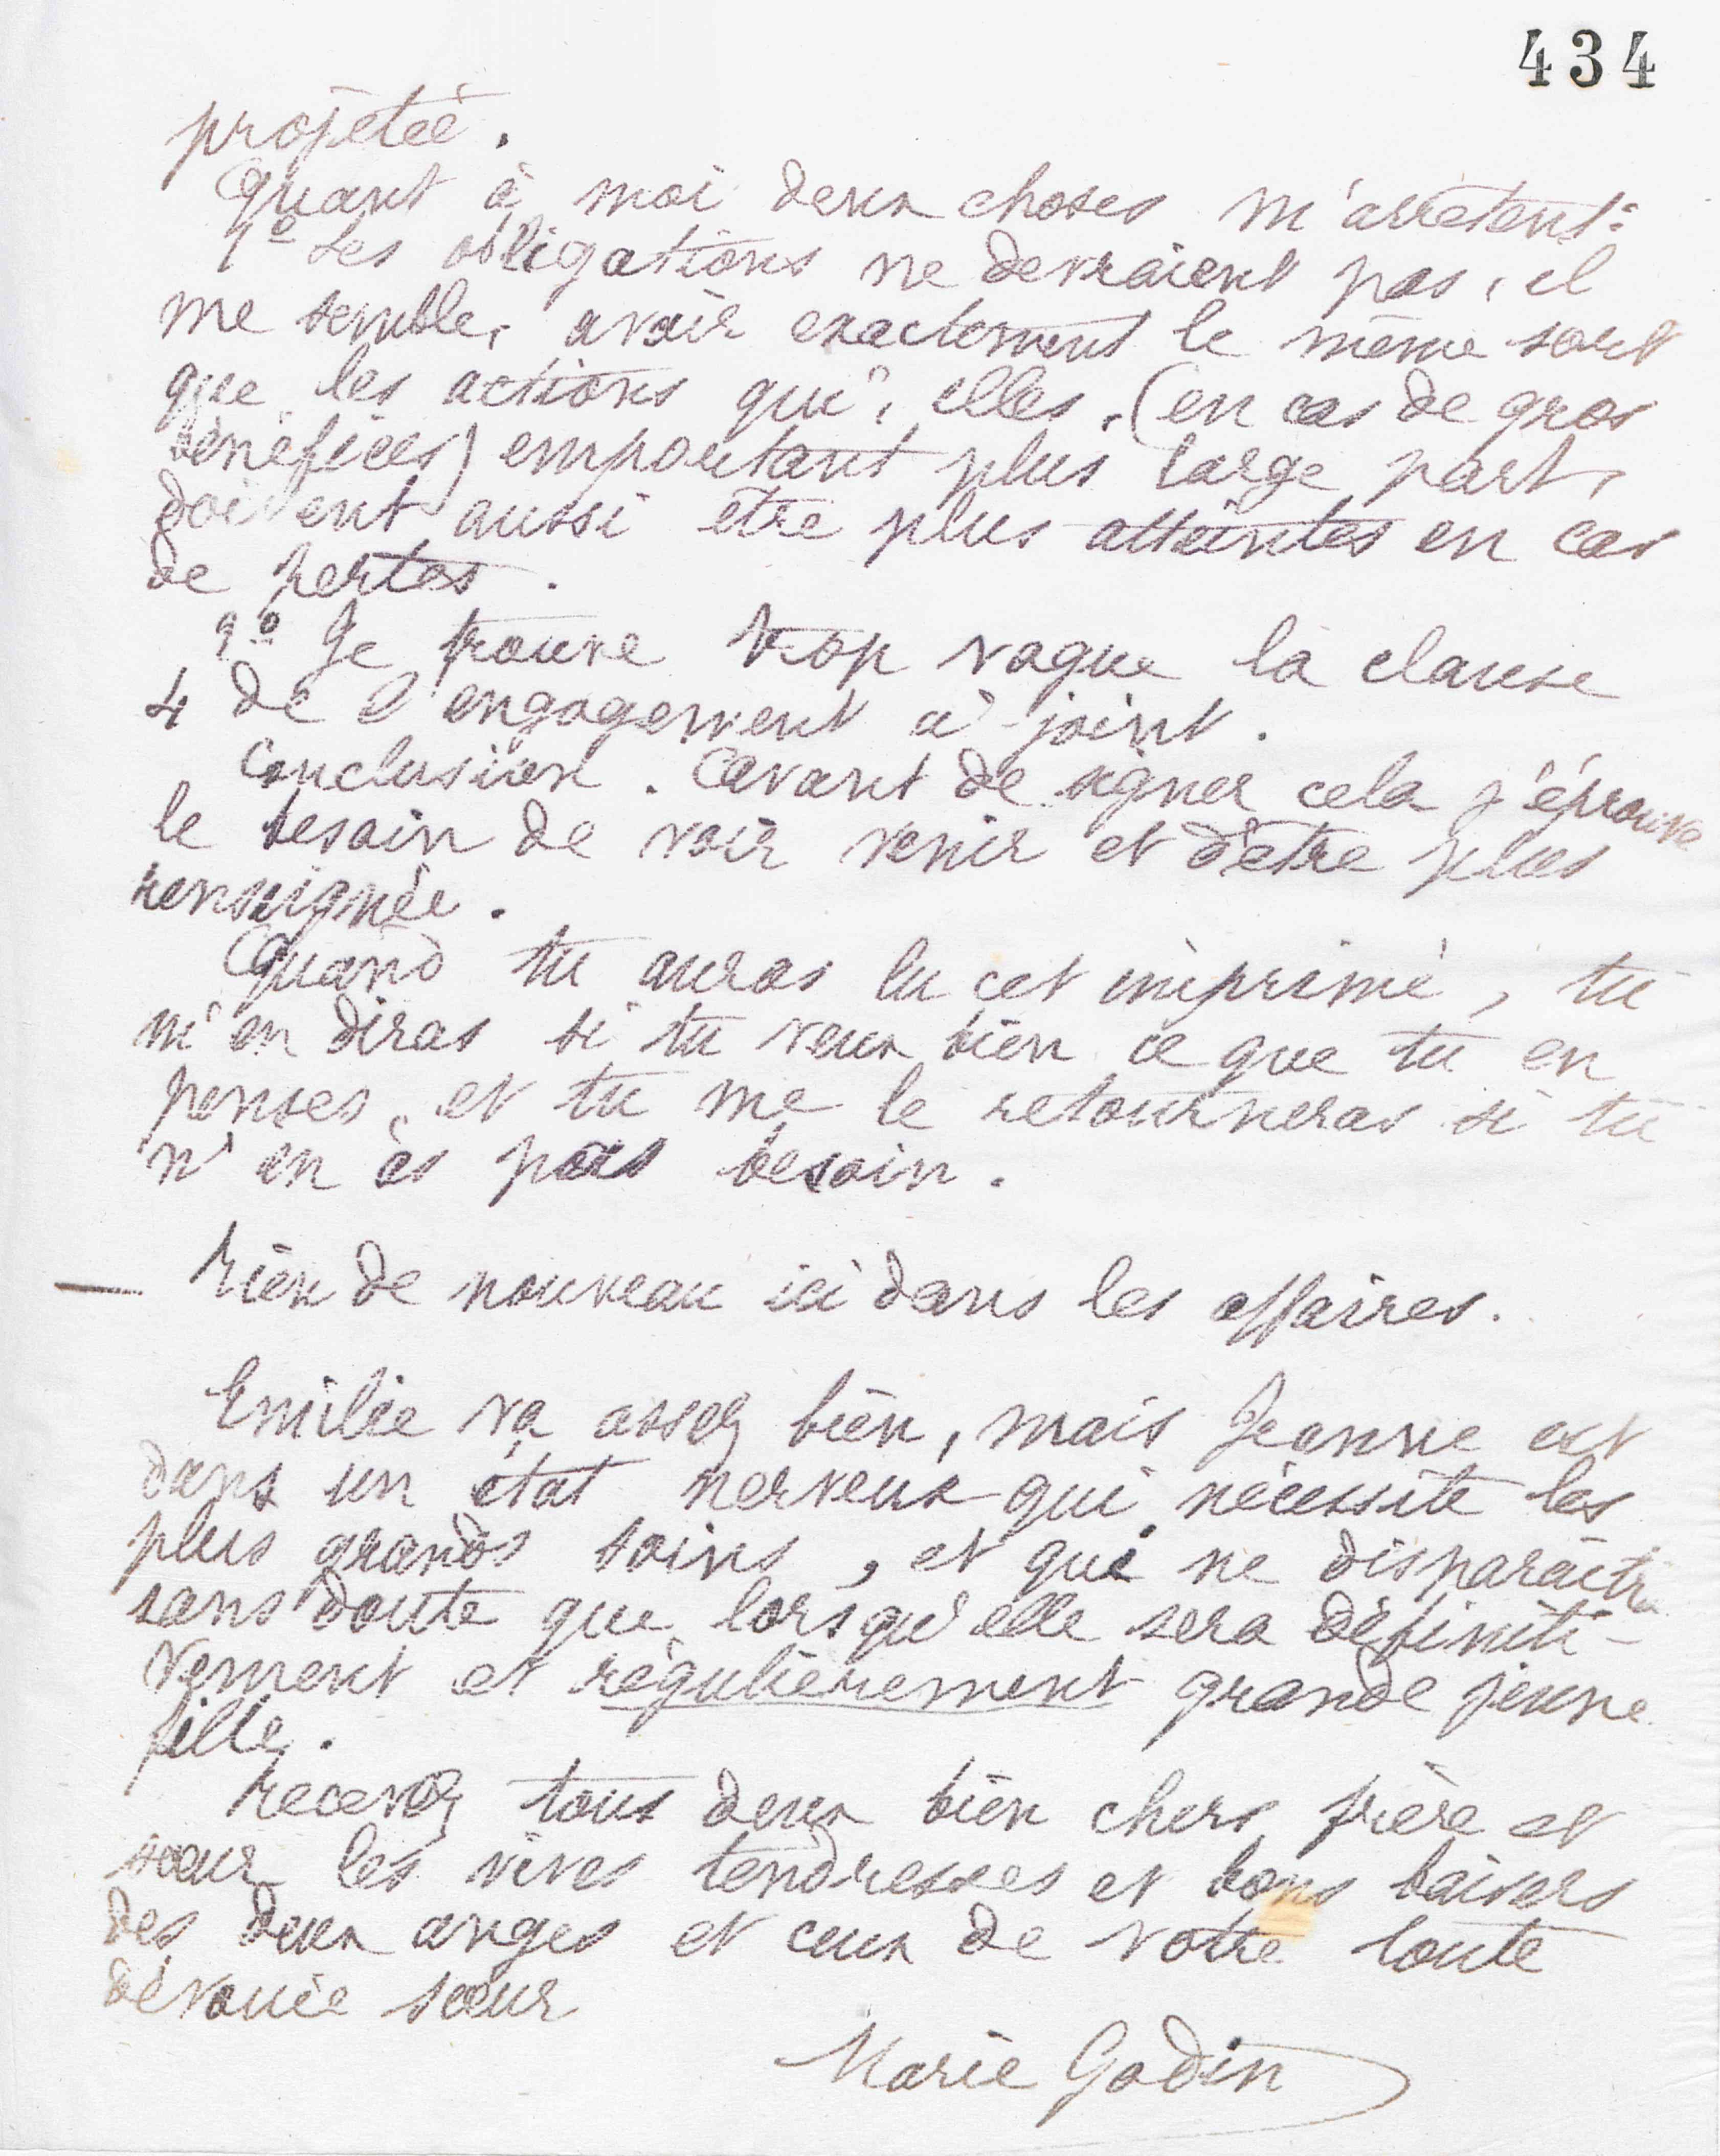 434
projetée.
Quant à moi deux choses m'arrêtent:
1º Les obligations ne devraient pas, il
me semble, avoir exactement le même sort
que les actions qui, elles, (en cas de gros
bénéfices) emportant plus large part,
doivent aussi être plus atteintes en cas
de pertes.
2º Je trouve trop vague la clause
4 de l'engagement ci-joint.
Conclusion. Avant de signer cela j'éprouve
le besoin de voir venir et d'être plus
renseignée.
Quand tu auras lu cet imprimé, tu
m'en diras si tu veux bien ce que tu en
penses, et tu me le retourneras si tu
n'en as pas besoin.
— Rien de nouveau ici dans les affaires.
Emilie va assez bien, mais Jeanne est
dans un état nerveux qui nécessite les
plus grands soins, et qui ne disparaîtra
sans doute que lorsqu'elle sera définiti-
vement et régulièrement grande jeune
fille.
Recevez tous deux bien chers frère et
sœur les vives tendresses et bons baisers
des deux anges et ceux de votre toute
dévouée sœur
Marie Godin